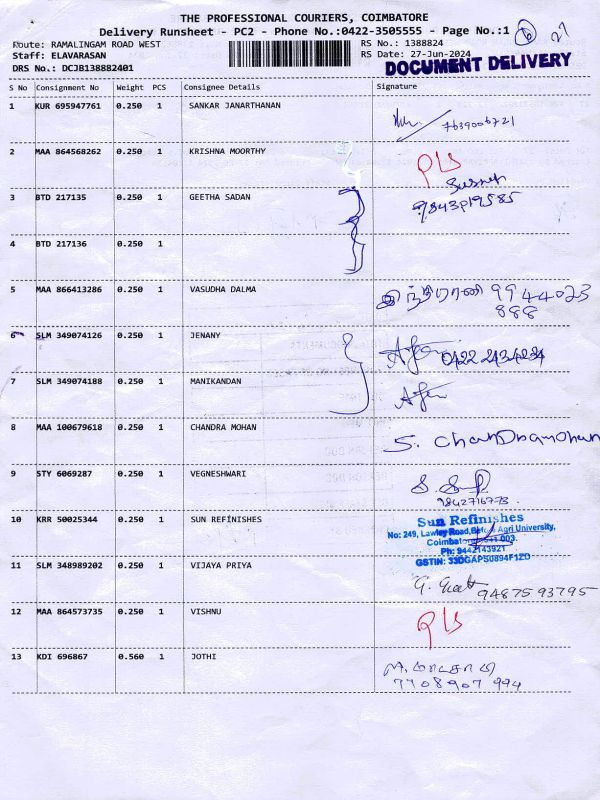 THE PROFESSIONAL COURIERS, COIMBATORE
Delivery Runsheet - PC2 - Phone No.:0422-3505555 - Page No.:1
Route: RAMALINGAM ROAD WEST RS No.: 1388824
Staff: ELAVARASAN RS Date: 27-Jun-2024
DRS No.: DCJB138882401 DOCUMENT DELIVERY
S No Consignment No Weight PCS Consignee Details Signature
1 KUR 695947761 0.250 1 SANKAR JANARTHANAN
7639006721
2 MAA 864568262 0.250 1 KRISHNA MOORTHY
3 BTD 217135 0.250 1 GEETHA SADAN
4 BTD 217136 0.250 1
5 MAA 866413286 0.250 1 VASUDHA DALMA இந்திராணி 9944023
888
6 SLM 349074126 0.250 1 JENANY
0422 2434234
7 SLM 349074188 0.250 1 MANIKANDAN
8 MAA 100679618 0.250 1 CHANDRA MOHAN
S. ChanDramohan
9 STY 6069287 0.250 1 VEGNESHWARI
9842716773
10 KRR 50025344 0.250 1 SUN REFINISHES Sun Refinishes
No: 249, Lawley Road, Before Agri University,
Coimbatore-641 003.
Ph: 9442143921
GSTIN: 33DGAPS0894F1ZD
11 SLM 348989202 0.250 1 VIJAYA PRIYA
9487593795
12 MAA 864573735 0.250 1 VISHNU
13 KDI 696867 0.560 1 JOTHI
7708907 994